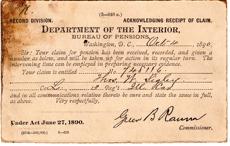 (3—018 a.)
RECORD DIVISION. ACKNOWLEDGING RECEIPT OF CLAIM.
DEPARTMENT OF THE INTERIOR,
BUREAU OF PENSIONS,
Washington, D. C., Oct. 4, 1890.
Sir: Your claim for pension has been received, recorded, and given a
number as below, and will be taken up for action in its regular turn. The
intervening time can be employed in preparing necessary evidence.
Your claim is entitled
Thos. W.
Co.
and in all communications relative thereto be sure and state the same in full,
as above. Very respectfully,
Green B Raum
Under Act June 27, 1890. Commissioner.